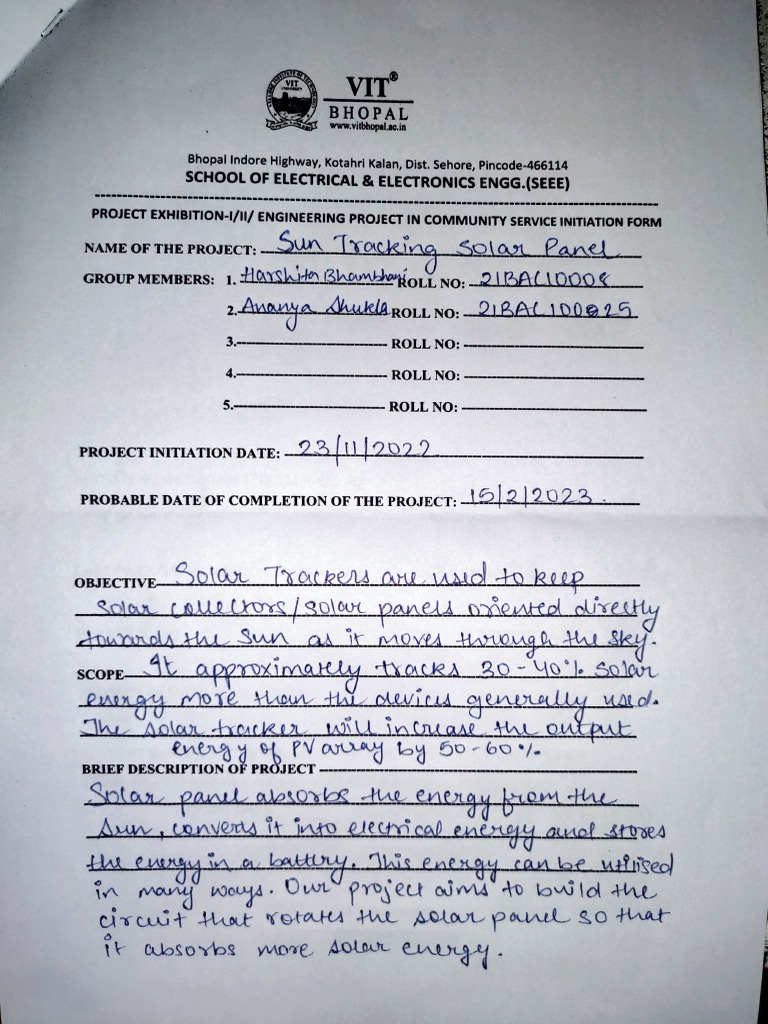 VIT
UNIVERSITY
VIT®
BHOPAL
www.vitbhopal.ac.in
Bhopal Indore Highway, Kotahri Kalan, Dist. Sehore, Pincode-466114
SCHOOL OF ELECTRICAL & ELECTRONICS ENGG.(SEEE)
PROJECT EXHIBITION-I/II/ ENGINEERING PROJECT IN COMMUNITY SERVICE INITIATION FORM
NAME OF THE PROJECT: Sun Tracking Solar Panel
GROUP MEMBERS: 1. Harshita Bhambhani ROLL NO: 21BAC10008
2. Ananya Shukla ROLL NO: 21BAC100025
3. ROLL NO:
4. ROLL NO:
5. ROLL NO:
PROJECT INITIATION DATE: 23/11/2022
PROBABLE DATE OF COMPLETION OF THE PROJECT: 15/2/2023.
OBJECTIVE Solar Trackers are used to keep
solar collectors/solar panels oriented directly
towards the Sun as it moves through the sky.
SCOPE It approximately tracks 30-40% solar
energy more than the devices generally used.
The solar tracker will increase the output
energy of PV array by 50-60%.
BRIEF DESCRIPTION OF PROJECT
Solar panel absorbs the energy from the
Sun, converts it into electrical energy and stores
the energy in a battery. This energy can be utilised
in many ways. Our project aims to build the
circuit that rotates the solar panel so that
it absorbs more solar energy.